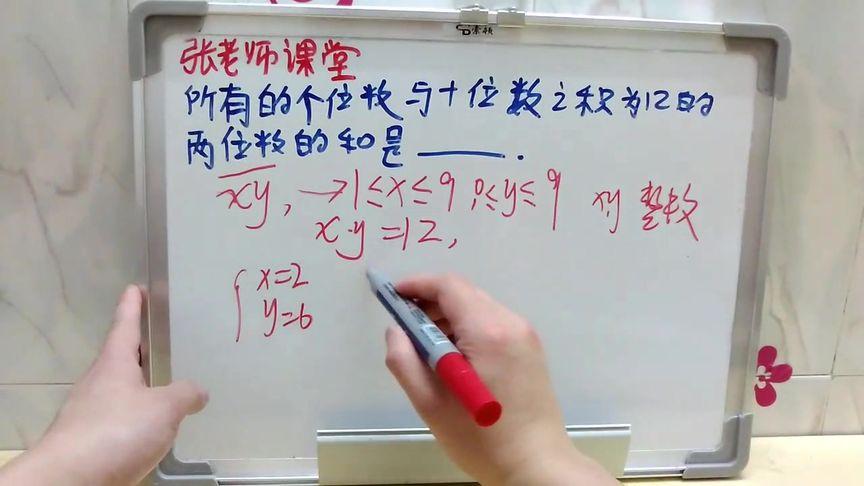 张老师课堂
所有的个位数与十位数之积为12的
两位数的和是____.
xy, →1≤x≤9, 0≤y≤9 x,y 整数
x·y=12,
x=2
y=6